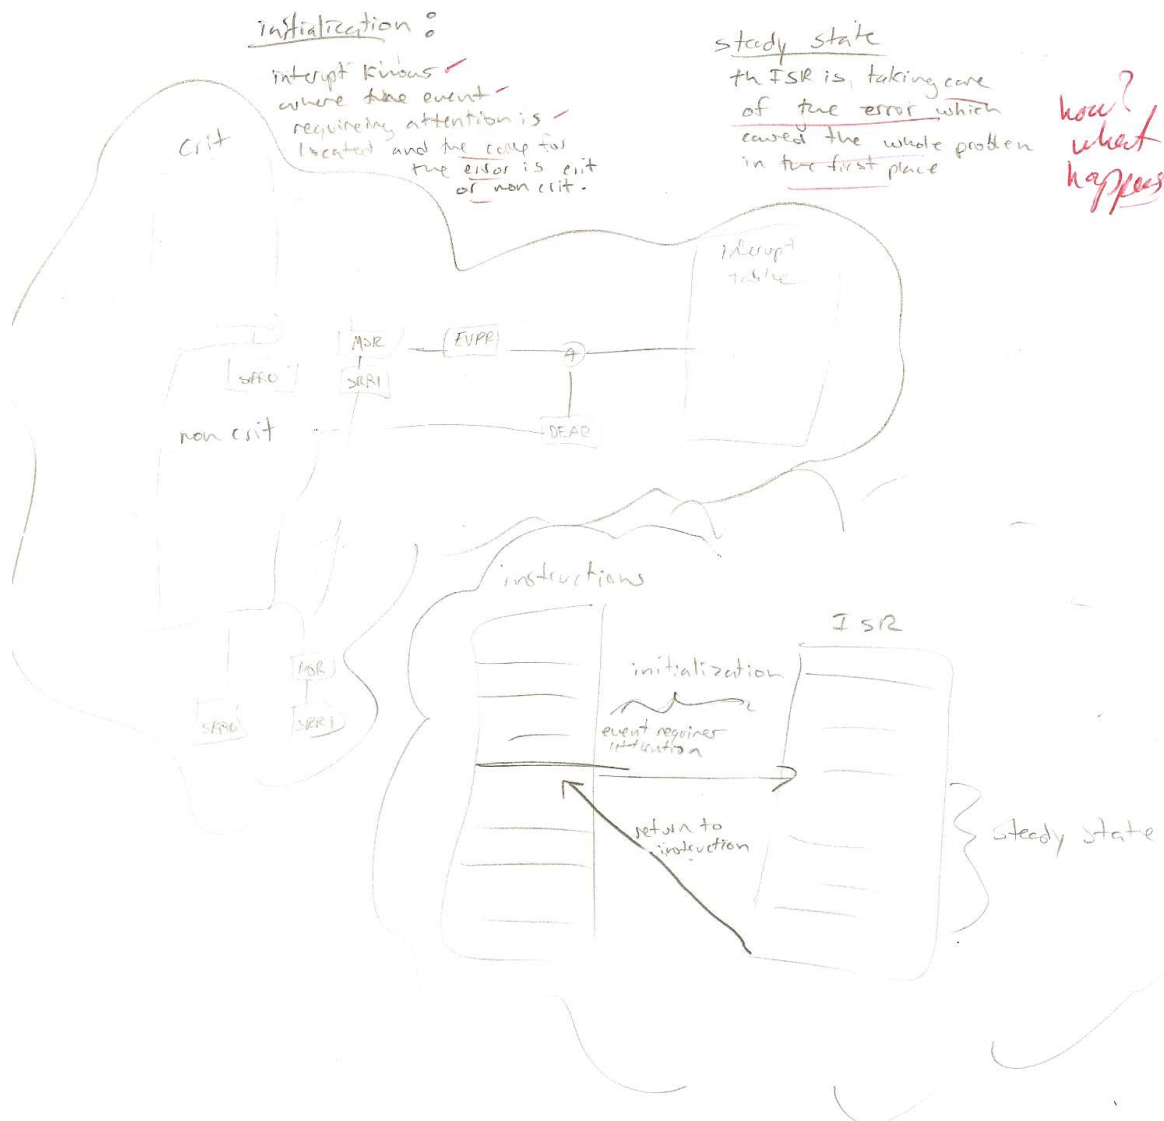 initialization :
interupt knows
where the event
requireing attention is
located and the code for
the error is crit
or non crit.
steady state
th ISR is taking care
of the error which
caused the whole problem
in the first place
how?
what
happens
crit
interupt
table
MSR
EVPR
+
SRR0
SRR1
non crit
DEAR
instructions
ISR
initialization
event requires
attention
return to
instruction
steady state
MSR
SRR0
SRR1